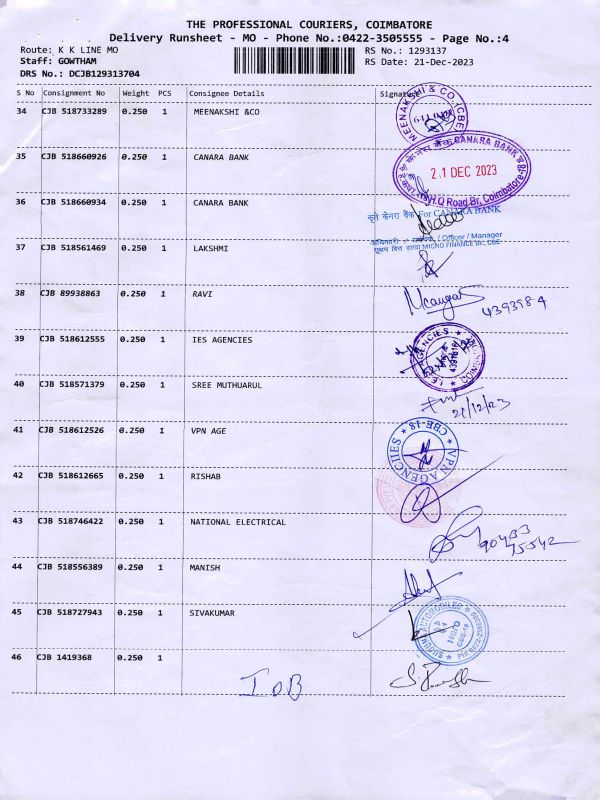 THE PROFESSIONAL COURIERS, COIMBATORE
Delivery Runsheet - MO - Phone No.:0422-3505555 - Page No.:4
Route: K K LINE MO
RS No.: 1293137
Staff: GOWTHAM
RS Date: 21-Dec-2023
DRS No.: DCJB129313704
S No Consignment No Weight PCS Consignee Details Signature
34 CJB 518733289 0.250 1 MEENAKSHI &CO
MEENAKSHI & CO. (CBE)
35 CJB 518660926 0.250 1 CANARA BANK
CANARA BANK
21 DEC 2023
H.Q Road Br, Coimbatore-18
36 CJB 518660934 0.250 1 CANARA BANK
For CANARA BANK
/ Officer / Manager
MICRO FINANCE Br. CBE-
37 CJB 518561469 0.250 1 LAKSHMI
38 CJB 89938863 0.250 1 RAVI
4393984
39 CJB 518612555 0.250 1 IES AGENCIES
AGENCIES
40 CJB 518571379 0.250 1 SREE MUTHUARUL
21/12/23
41 CJB 518612526 0.250 1 VPN AGE
VPN AGENCIIES CBE-18
42 CJB 518612665 0.250 1 RISHAB
43 CJB 518746422 0.250 1 NATIONAL ELECTRICAL
90433
75542
44 CJB 518556389 0.250 1 MANISH
45 CJB 518727943 0.250 1 SIVAKUMAR
AUTOMOBILES
CBE-18
46 CJB 1419368 0.250 1
IOB